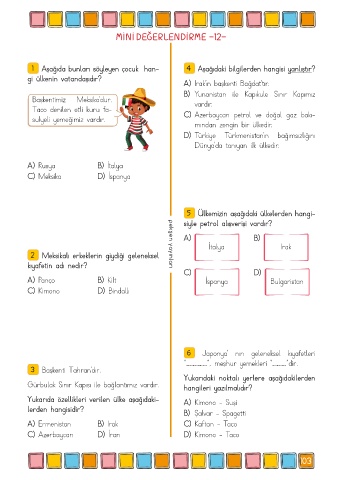 MİNİ DEĞERLENDİRME -12-
1 Aşağıda bunları söyleyen çocuk han-
gi ülkenin vatandaşıdır?
Başkentimiz Meksiko'dur.
Taco denilen etli kuru fa-
sulyeli yemeğimiz vardır.
A) Rusya B) İtalya
C) Meksika D) İspanya
2 Meksikalı erkeklerin giydiği geleneksel
kıyafetin adı nedir?
A) Panço B) Kilt
C) Kimono D) Bindallı
3 Başkenti Tahran'dır.
Gürbulak Sınır Kapısı ile bağlantımız vardır.
Yukarıda özellikleri verilen ülke aşağıdaki-
lerden hangisidir?
A) Ermenistan B) Irak
C) Azerbaycan D) İran
pelikan yayınları
4 Aşağıdaki bilgilerden hangisi yanlıştır?
A) Irak'ın başkenti Bağdat'tır.
B) Yunanistan ile Kapıkule Sınır Kapımız
vardır.
C) Azerbaycan petrol ve doğal gaz bakı-
mından zengin bir ülkedir.
D) Türkiye Türkmenistan'ın bağımsızlığını
Dünya'da tanıyan ilk ülkedir.
5 Ülkemizin aşağıdaki ülkelerden hangi-
siyle petrol alışverisi vardır?
A) İtalya B) Irak
C) İspanya D) Bulgaristan
6 Japonya' nın geleneksel kıyafetleri
"______", meşhur yemekleri "____"dir.
Yukarıdaki noktalı yerlere aşağıdakilerden
hangileri yazılmalıdır?
A) Kimono - Suşi
B) Şalvar - Spagetti
C) Kaftan - Taco
D) Kimono - Taco
103